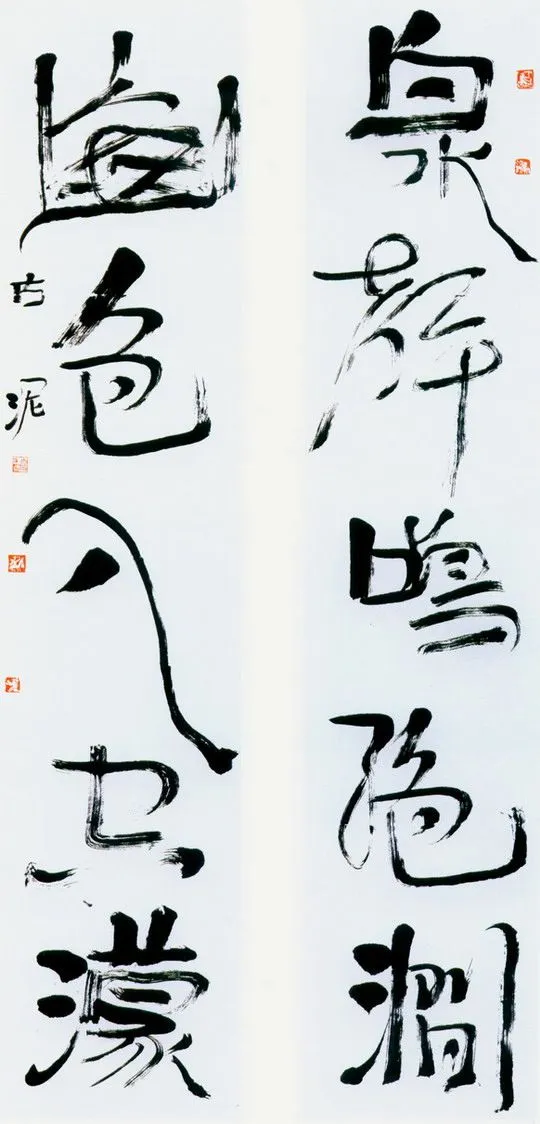 泉聲鳴絶澗
色入空濛
古泥